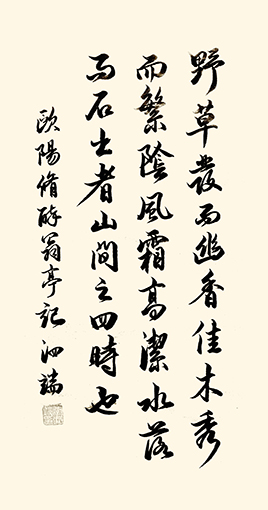 野草發而幽香佳木秀
而繁陰風霜高潔水落
而石出者山間之四時也
歐陽脩醉翁亭記 泗端